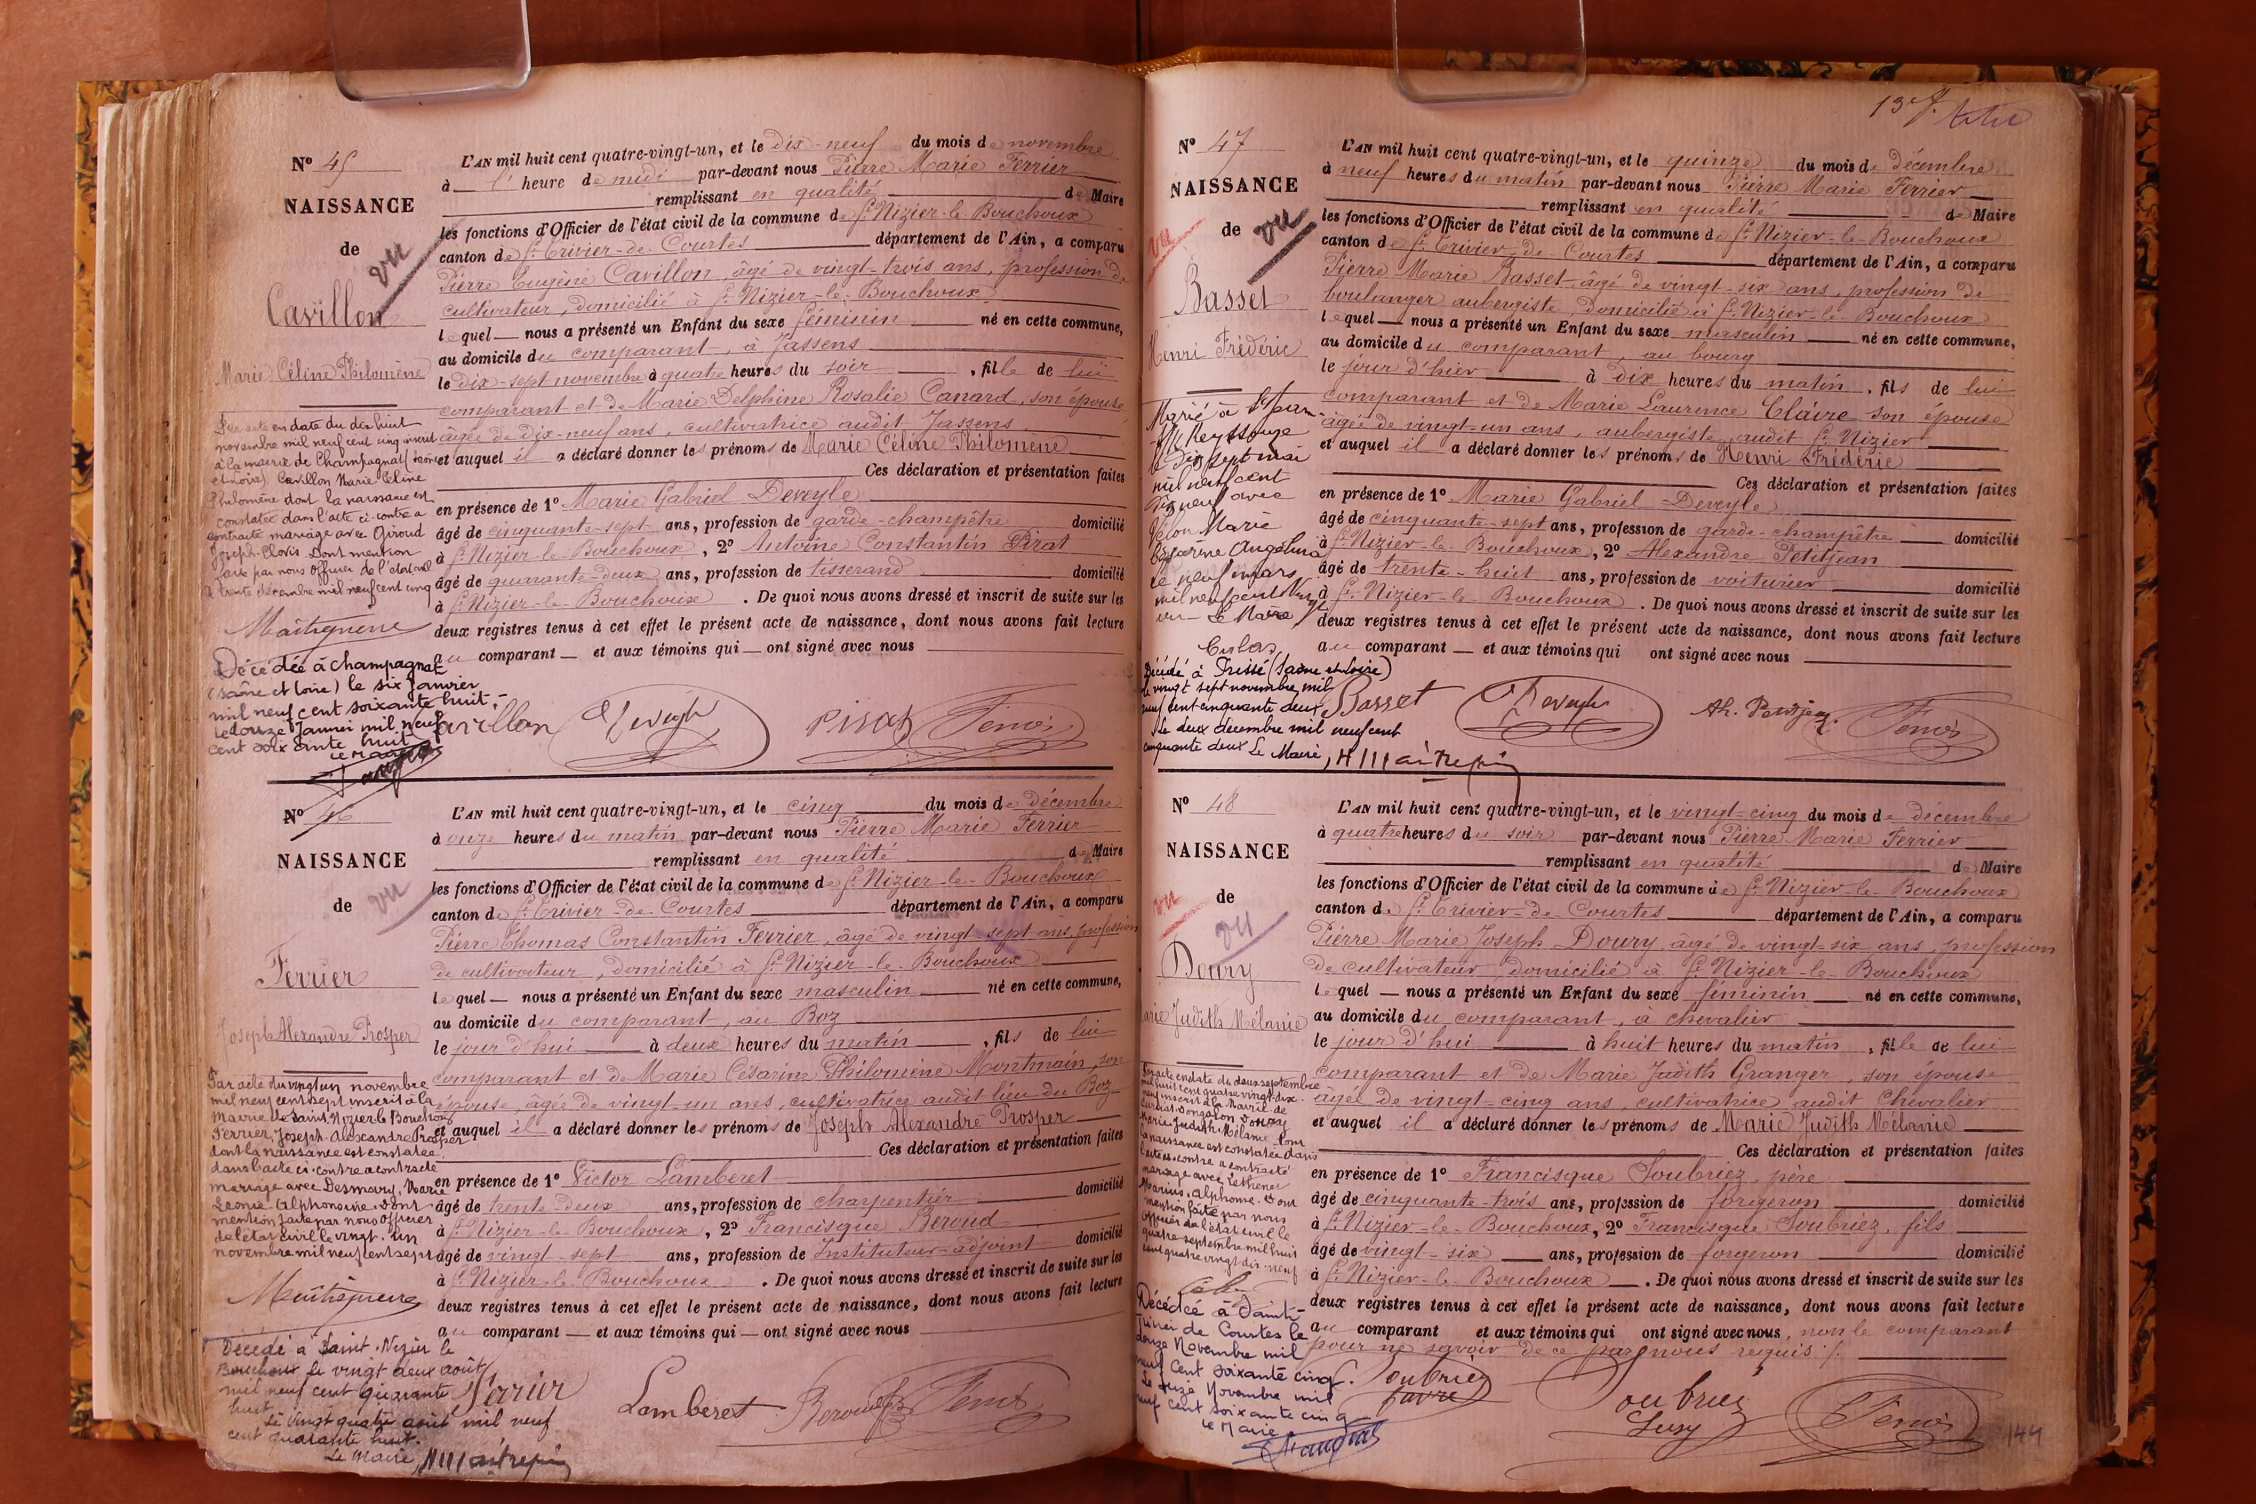 N° 45
NAISSANCE
de
vu
Cavillon
Marie Céline Philomène
Par acte en date du dix huit
novembre mil neuf cent cinq inscrit
à la mairie de Champagnat (Saône
et Loire) Cavillon Marie Céline
Philomène dont la naissance est
constatée dans l'acte ci-contre a
contracté mariage avec Giroud
Joseph Clovis Dont mention
faite par nous Officier de l'état civil
trente décembre mil neuf cent cinq
Décédée à Champagnat
(Saône et Loire) le six Janvier
mil neuf cent soixante huit.-
le douze Janvier mil neuf
cent soixante huit
Le Maire
L'AN mil huit cent quatre-vingt-un, et le dix-neuf du mois de novembre
à l' heure de midi par-devant nous Pierre Marie Ferrier
remplissant en qualité de Maire
les fonctions d'Officier de l'état civil de la commune de St Nizier-le-Bouchoux
canton de St Trivier-de-Courtes département de l'Ain, a comparu
Pierre Eugène Cavillon, âgé de vingt-trois ans, profession de
cultivateur, domicilié à St Nizier-le-Bouchoux
lequel nous a présenté un Enfant du sexe féminin né en cette commune,
au domicile du comparant, à Jassens
le dix-sept novembre à quatre heures du soir, fille de lui
comparant et de Marie Delphine Rosalie Canard, son épouse
âgée de dix-neuf ans, cultivatrice audit Jassens
et auquel il a déclaré donner les prénoms de Marie Céline Philomène
Ces déclaration et présentation faites
en présence de 1° Marie Gabriel Deveyle
âgé de cinquante-sept ans, profession de garde-champêtre domicilié
à St Nizier-le-Bouchoux, 2° Antoine Constantin Pirat
âgé de quarante-deux ans, profession de tisserand domicilié
à St Nizier-le-Bouchoux. De quoi nous avons dressé et inscrit de suite sur les
deux registres tenus à cet effet le présent acte de naissance, dont nous avons fait lecture
au comparant et aux témoins qui ont signé avec nous
Cavillon Deveyle Pirat Ferrier
N° 46
NAISSANCE
de
vu
Ferrier
Joseph Alexandre Prosper
Par acte du vingt un novembre
mil neuf cent sept inscrit à la
Mairie de Saint Nizier le Bouchoux
Ferrier, Joseph Alexandre Prosper
dont la naissance est constatée
dans l'acte ci-contre a contracté
mariage avec Desmary, Marie
Léonie Alphonsine. Dont
mention faite par nous Officier
de l'état civil le vingt-un
novembre mil neuf cent sept
Décédé à Saint-Nizier le
Bouchoux le vingt deux août
mil neuf cent quarante
huit.
Le vingt quatre août mil neuf
cent quarante huit.
Le Maire,
L'AN mil huit cent quatre-vingt-un, et le cinq du mois de décembre
à onze heures du matin par-devant nous Pierre Marie Ferrier
remplissant en qualité de Maire
les fonctions d'Officier de l'état civil de la commune de St Nizier-le-Bouchoux
canton de St Trivier-de-Courtes département de l'Ain, a comparu
Pierre Thomas Constantin Ferrier, âgé de vingt-sept ans, profession
de cultivateur, domicilié à St Nizier-le-Bouchoux
lequel nous a présenté un Enfant du sexe masculin né en cette commune,
au domicile du comparant, au Boz
le jour d'hui à deux heures du matin, fils de lui
comparant et de Marie Césarine Philomène Montmain, son
épouse, âgée de vingt-un ans, cultivatrice audit lieu du Boz
et auquel il a déclaré donner les prénoms de Joseph Alexandre Prosper
Ces déclaration et présentation faites
en présence de 1° Victor Lamberet
âgé de trente-deux ans, profession de charpentier domicilié
à St Nizier-le-Bouchoux, 2° Francisque Beroud
âgé de vingt-sept ans, profession de Instituteur-adjoint domicilié
à St Nizier-le-Bouchoux. De quoi nous avons dressé et inscrit de suite sur les
deux registres tenus à cet effet le présent acte de naissance, dont nous avons fait lecture
au comparant et aux témoins qui ont signé avec nous
Ferrier Lamberet Beroud Ferrier
N° 47
NAISSANCE
de
vu
vu
Basset
Henri Frédéric
Marié à St Jean-
s/ Reyssouze
le dix sept mai
mil neuf cent
dix neuf avec
Marie
Angelina
le neuf mars
mil neuf cent
Le Maire
Décédé à Prissé (Saône et Loire)
le vingt sept novembre mil
neuf cent cinquante deux
Le deux décembre mil neuf cent
cinquante deux Le Maire,
L'AN mil huit cent quatre-vingt-un, et le quinze du mois de décembre
à neuf heures du matin par-devant nous Pierre Marie Ferrier
remplissant en qualité de Maire
les fonctions d'Officier de l'état civil de la commune de St Nizier-le-Bouchoux
canton de St Trivier-de-Courtes département de l'Ain, a comparu
Pierre Marie Basset, âgé de vingt-six ans, profession de
boulanger aubergiste, domicilié à St Nizier-le-Bouchoux
lequel nous a présenté un Enfant du sexe masculin né en cette commune,
au domicile du comparant, au bourg
le jour d'hier à dix heures du matin, fils de lui
comparant et de Marie Laurence Claire son épouse
âgée de vingt-un ans, aubergiste audit St Nizier
et auquel il a déclaré donner les prénoms de Henri Frédéric
Ces déclaration et présentation faites
en présence de 1° Marie Gabriel Deveyle
âgé de cinquante-sept ans, profession de garde-champêtre domicilié
à St Nizier-le-Bouchoux, 2° Alexandre Petitjean
âgé de trente-huit ans, profession de voiturier domicilié
à St Nizier-le-Bouchoux. De quoi nous avons dressé et inscrit de suite sur les
deux registres tenus à cet effet le présent acte de naissance, dont nous avons fait lecture
au comparant et aux témoins qui ont signé avec nous
Basset Deveyle Al. Petitjean Ferrier
N° 48
NAISSANCE
de
vu
vu
Doury
Marie Judith Mélanie
Par acte en date du deux septembre
mil huit cent quatre vingt dix
neuf inscrit à la Mairie de
Doury
Marie Judith Mélanie dont
la naissance est constatée dans
l'acte ci-contre a contracté
mariage avec Lethenet
Marius Alphonse. Dont
mention faite par nous
Officier de l'état civil le
quatre septembre mil huit
cent quatre vingt dix-neuf
Décédée à Saint-
Trivier de Courtes le
douze Novembre mil
neuf cent soixante cinq.
Le seize Novembre mil
neuf cent soixante cinq
Le Maire
L'AN mil huit cent quatre-vingt-un, et le vingt-cinq du mois de décembre
à quatre heures du soir par-devant nous Pierre Marie Ferrier
remplissant en qualité de Maire
les fonctions d'Officier de l'état civil de la commune de St Nizier-le-Bouchoux
canton de St Trivier-de-Courtes département de l'Ain, a comparu
Pierre Marie Joseph Doury, âgé de vingt-six ans, profession
de cultivateur, domicilié à St Nizier-le-Bouchoux
lequel nous a présenté un Enfant du sexe féminin né en cette commune,
au domicile du comparant, à chevalier
le jour d'hui à huit heures du matin, fille de lui
comparant et de Marie Judith Granger, son épouse
âgée de vingt-cinq ans, cultivatrice audit Chevalier
et auquel il a déclaré donner les prénoms de Marie Judith Mélanie
Ces déclaration et présentation faites
en présence de 1° Francisque Soubriez, père
âgé de cinquante-trois ans, profession de forgeron domicilié
à St Nizier-le-Bouchoux, 2° Francisque Soubriez, fils
âgé de vingt-six ans, profession de forgeron domicilié
à St Nizier-le-Bouchoux. De quoi nous avons dressé et inscrit de suite sur les
deux registres tenus à cet effet le présent acte de naissance, dont nous avons fait lecture
au comparant et aux témoins qui ont signé avec nous, non le comparant
pour ne savoir de ce par nous requis ./.
Soubriez Soubriez Ferrier
144